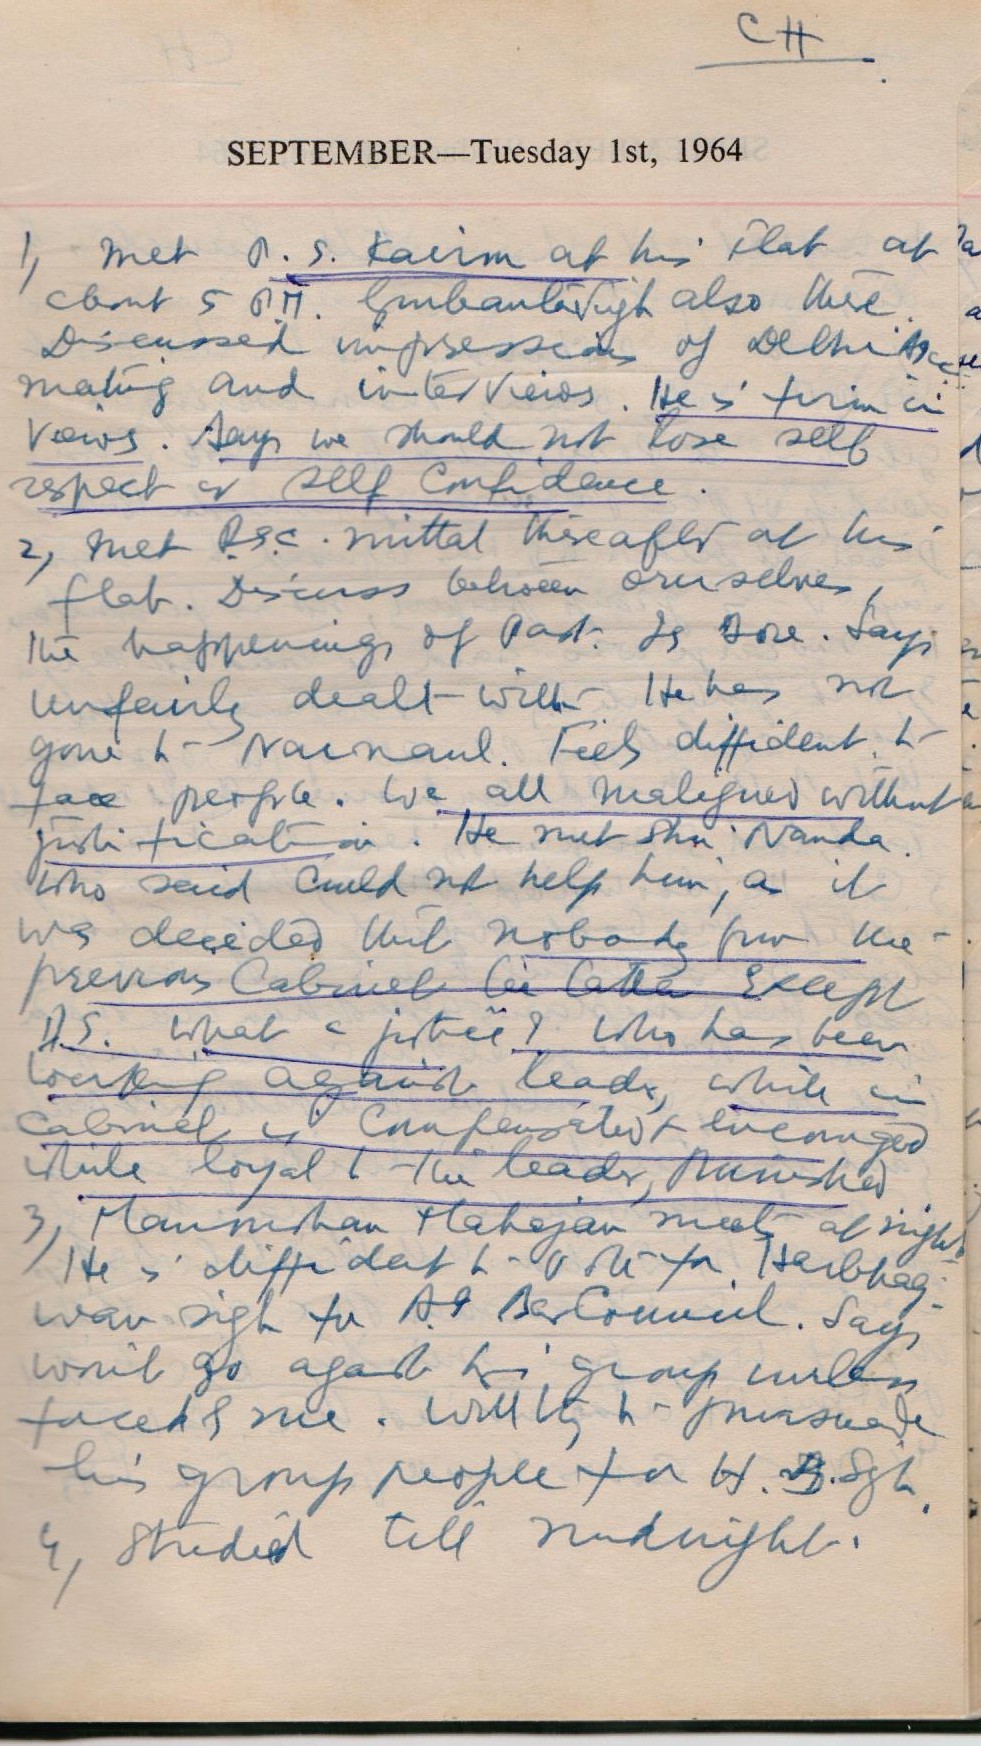 CH
SEPTEMBER—Tuesday 1st, 1964
1, Met P. S. Kairon at his Flat at
about 5 P.M. Gurbanta Sigh also there.
Discussed impressions of Delhi
meeting and interviews. He is firm in
views. Says we should not lose self
respect or self confidence.
2, Met R.S.C. Mittal thereafter at his
flat. Discuss between ourselves,
the happenings of Past. Is sore. Says
unfairly dealt with He has not
gone to Narnaul. Feels diffident to
face people. We all maligned without
justification. He met Shri Nanda.
who said could not help him, as it
was decided that nobody from the
previous Cabinet be taken Except
D.S. What a justice? Who has been
working against leader, while in
Cabinet is Compensated & encouraged
while loyal to the leader, Punished
3, Manmohan Mahajan meets at night
He is diffident to vote for Harbhag-
wan Sigh for Bar Council. Says
won't go against his group unless
forced by me. Will try to persuade
his group people for H. B. Sgh.
4, Studied till midnight.